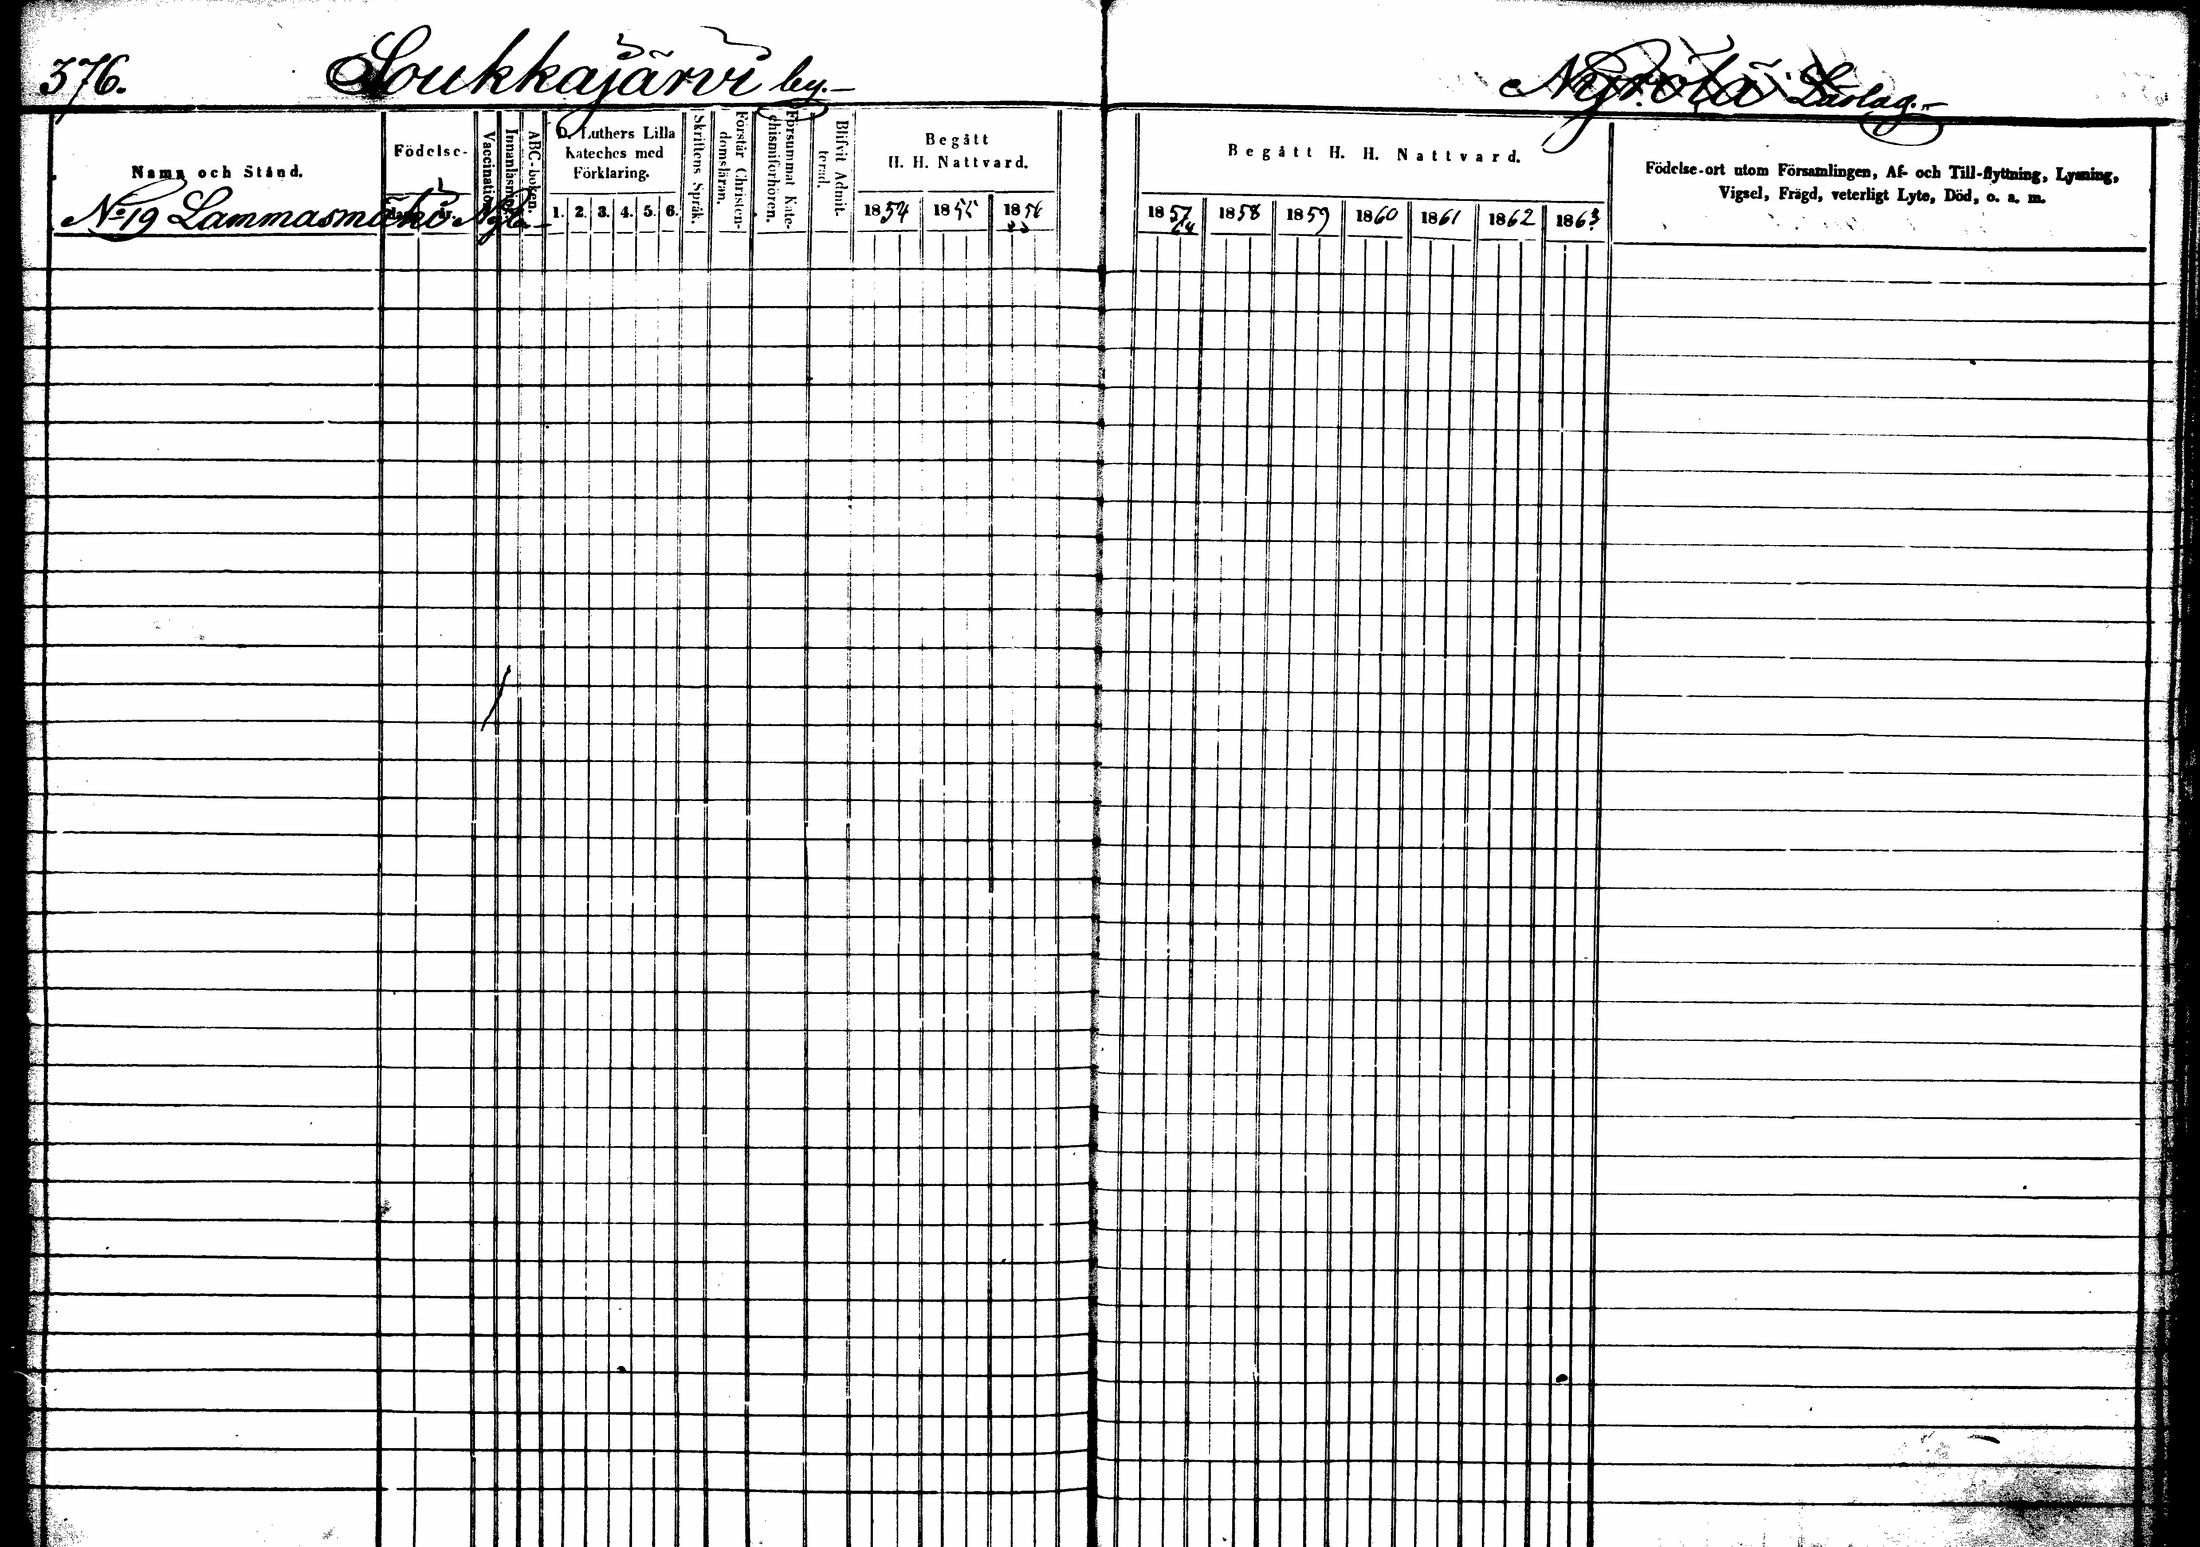 376. Soukkajärvi by.
Nyrölä Läslag.
Namn och Stånd.
Födelse-
Vaccination.
Innanläsning.
ABC-boken.
D. Luthers Lilla
Kateches med
Förklaring.
1. 2. 3. 4. 5. 6.
Skriftens Språk.
Förstår Christen-
domsläran.
Försummat Kate-
chismiförhören.
Blifvit Admit-
terad.
Begått
H. H. Nattvard.
1854 1855 1856
No 19 Lammasmäki
Begått H. H. Nattvard.
1857 1858 1859 1860 1861 1862 1863
Födelse-ort utom Församlingen, Af- och Till-flyttning, Lysning,
Vigsel, Frägd, veterligt Lyte, Död, o. s. m.